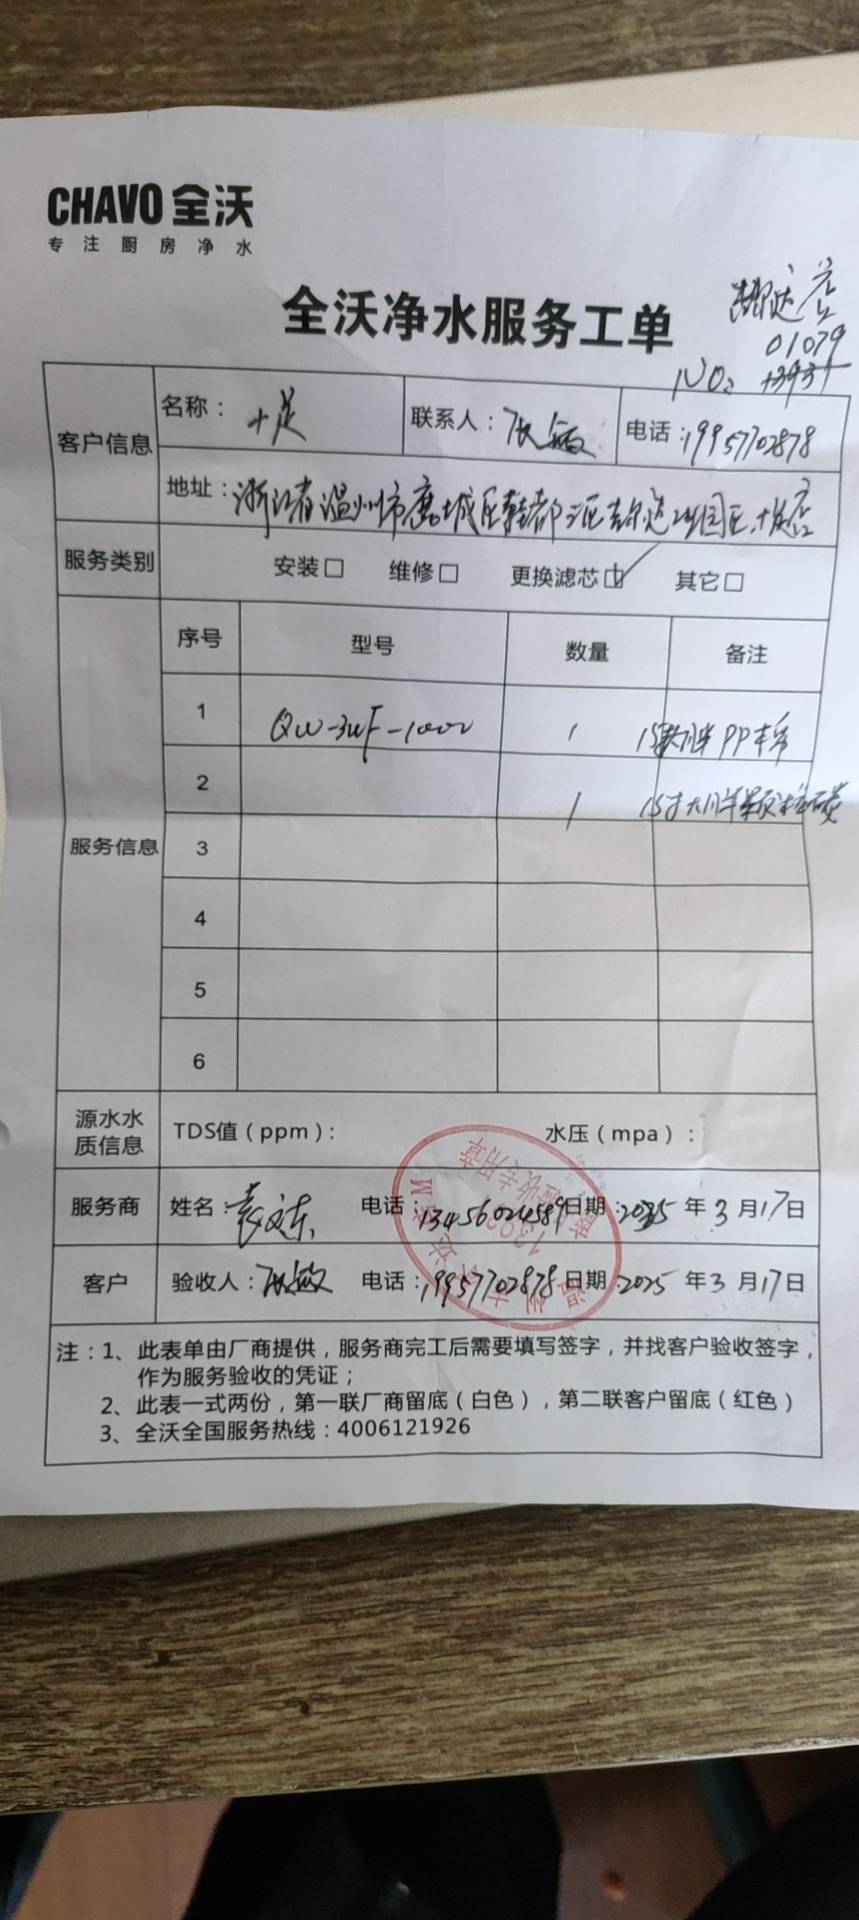 CHAVO 全沃
专注厨房净水
全沃净水服务工单
达店
01079
NO:
客户信息
名称：十足 联系人：张敏 电话：19957702878
地址：浙江省温州市鹿城区鞋都三区吉尔达园区 十足店
服务类别 安装□ 维修□ 更换滤芯☑ 其它□
服务信息
序号 型号 数量 备注
1 QW-3UF-1000 1 15寸大胖PP棉
2 1 15寸大胖颗粒碳
3
4
5
6
源水水质信息 TDS值（ppm）： 水压（mpa）：
服务商 姓名：袁文东 电话：13456024589 日期：2025年3月17日
客户 验收人：张敏 电话：19957702878 日期：2025年3月17日
验收专用章
温州市
注：1、此表单由厂商提供，服务商完工后需要填写签字，并找客户验收签字，
作为服务验收的凭证；
2、此表一式两份，第一联厂商留底（白色），第二联客户留底（红色）
3、全沃全国服务热线：4006121926